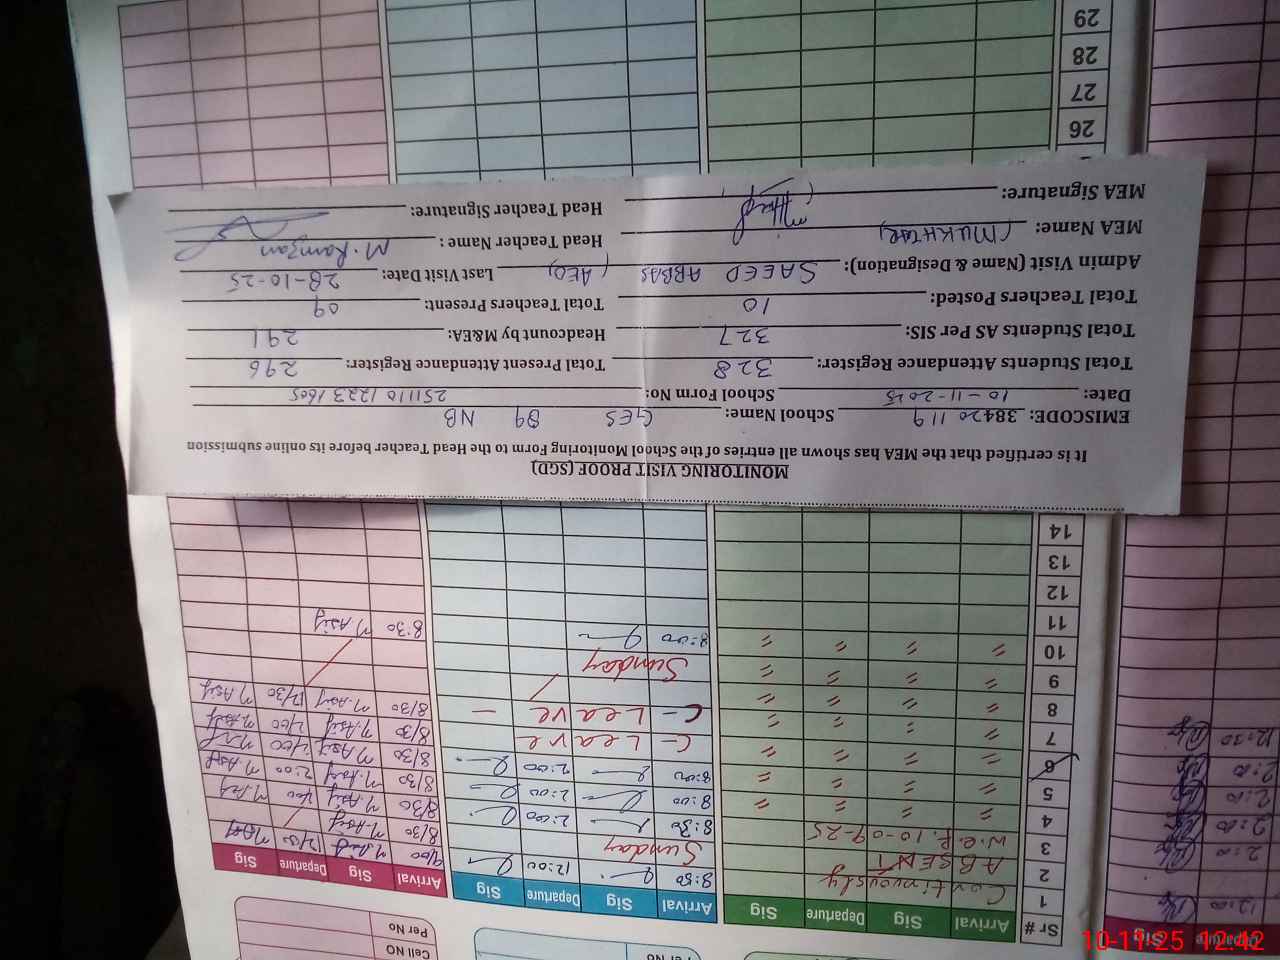 MONITORING VISIT PROOF (SGD)
It is certified that the MEA has shown all entries of the School Monitoring Form to the Head Teacher before its online submission
EMISCODE: 38420119 School Name: GES 89 NB
Date: 10-11-2025 School Form No: 2511101223 1605
Total Students Attendant Register: 328 Total Present Attendant Register: 296
Total Students AS Per SIS: 327 Headcount by M&EA: 291
Total Teachers Posted: 10 Total Teachers Present: 09
Admin Visit (Name & Designation): SAEED ABBAS (AEO) Last Visit Date: 28-10-25
MEA Name: (MUKHTAR) Head Teacher Name: M. Ramzan
MEA Signature: Head Teacher Signature:
Cell NO
Per No
Per No
Sr # Arrival Sig Departure Sig Arrival Sig Departure Sig Arrival Sig Departure Sig
1 Continuously 8:50 12:00 9:00 12/30
2 ABSENT Sunday
3 W.e.f. 10-09-25 8:30 2:00 8/30
4 " " " " 8:00 2:00 8/30 2:00
5 " " " " 8:00 2:00 8/30 2:00
6 " " " " C - Leave 8/30 2:00
7 " " " " C - Leave - 8/30 2:00
8 " " " " 8/30 M. Asif 12/30 M. Asif
9 " " " " Sunday
10 " " " " 8:00 8:30 M. Asif
11
12
13
14
26
27
28
29
Departure Sig
12:00
2:00
2:00
2:00
2:00
12:30
10-11-25 12:42